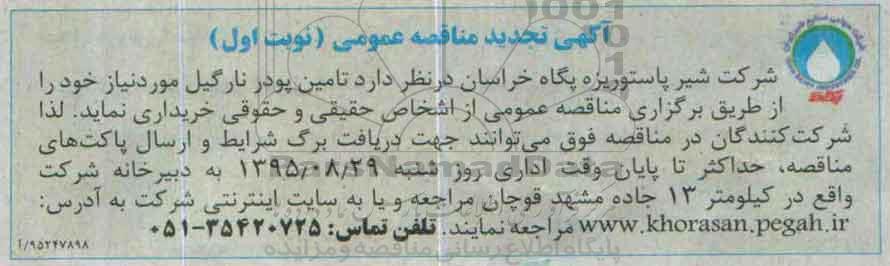 آگهی تجدید مناقصه عمومی (نوبت اول)
شرکت شیر پاستوریزه پگاه خراسان درنظر دارد تامین پودر نارگیل موردنیاز خود را
از طریق برگزاری مناقصه عمومی از اشخاص حقیقی و حقوقی خریداری نماید. لذا
شرکت‌کنندگان در مناقصه فوق می‌توانند جهت دریافت برگ شرایط و ارسال پاکت‌های
مناقصه، حداکثر تا پایان وقت اداری روز شنبه ۱۳۹۵/۰۸/۲۹ به دبیرخانه شرکت
واقع در کیلومتر ۱۳ جاده مشهد قوچان مراجعه و یا به سایت اینترنتی شرکت به آدرس:
www.khorasan.pegah.ir مراجعه نمایند. تلفن تماس: ۳۵۴۲۰۷۲۵-۰۵۱
۹۵۲۴۷۸۹۸/آ
ParsNamadData
پایگاه اطلاع رسانی مناقصه و مزایده